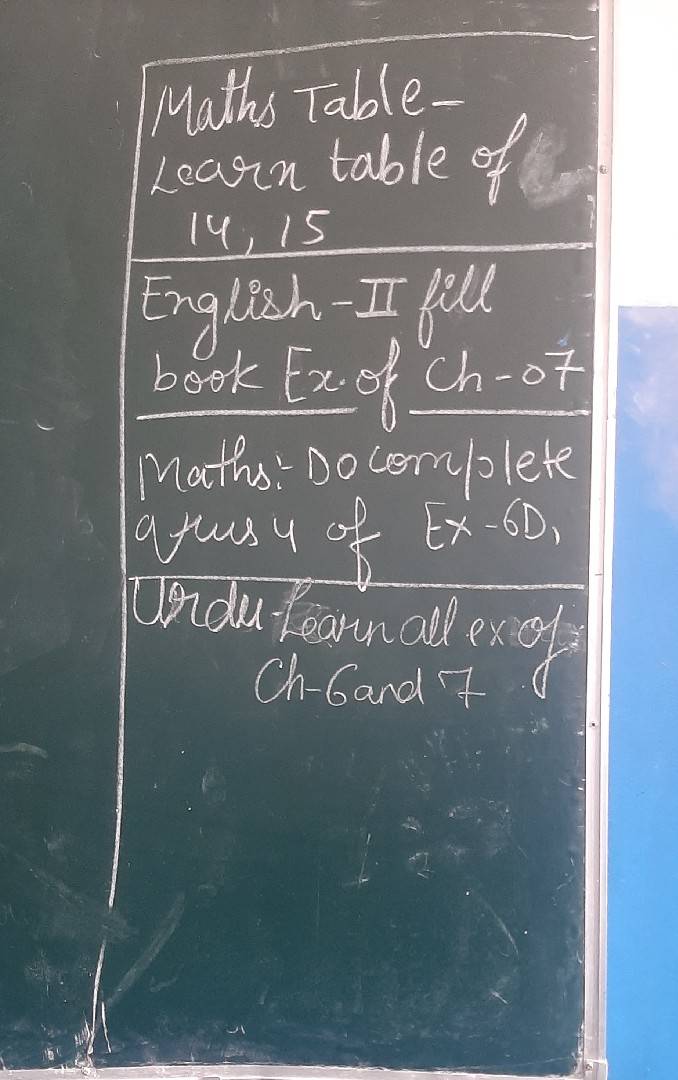 Maths Table-
Learn table of
14, 15
English-II fill
book Ex. of Ch-07
Maths:- Do complete
of Ex-6D.
Urdu-Learn all ex of
Ch-6 and 7